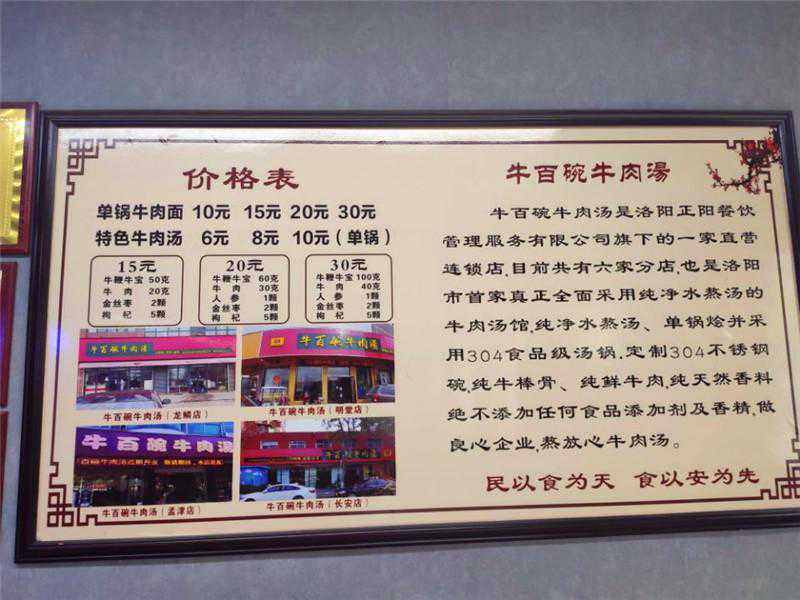 价格表
单锅牛肉面 10元 15元 20元 30元
特色牛肉汤 6元 8元 10元（单锅）
15元
牛鞭牛宝 50克
牛肉 20克
金丝枣 2颗
枸杞 5颗
20元
牛鞭牛宝 60克
牛肉 30克
人参 1颗
金丝枣 2颗
枸杞 5颗
30元
牛鞭牛宝 100克
牛肉 40克
人参 1颗
金丝枣 2颗
枸杞 5颗
牛百碗牛肉湯
牛百碗牛肉汤（龙鳞店）
牛百碗牛肉湯
牛百碗牛肉汤（明堂店）
牛百碗牛肉湯
牛百碗牛肉汤（孟津店）
牛百碗牛肉湯
牛百碗牛肉汤（长安店）
牛百碗牛肉湯
牛百碗牛肉汤是洛阳正阳餐饮
管理服务有限公司旗下的一家直营
连锁店,目前共有六家分店,也是洛阳
市首家真正全面采用纯净水熬汤的
牛肉汤馆,纯净水熬汤、单锅烩并采
用304食品级汤锅,定制304不锈钢
碗,纯牛棒骨、纯鲜牛肉,纯天然香料
绝不添加任何食品添加剂及香精,做
良心企业,熬放心牛肉汤。
民以食为天 食以安为先